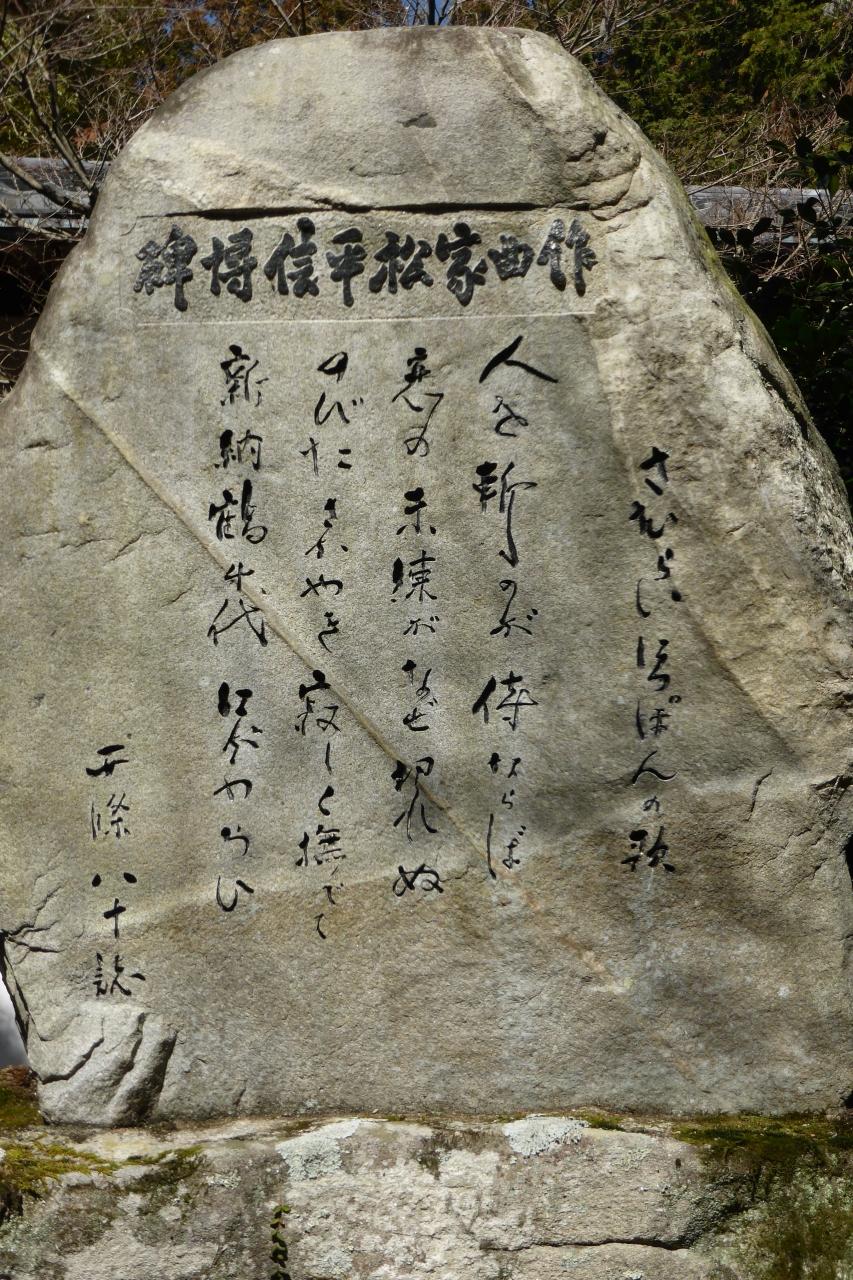 作曲家松平信博碑
さむらいにつぽんの歌
人を斬のが侍ならば
恋の未練がなぜ切れぬ
のびたさかやき寂しく撫でて
新納鶴千代にがわらひ
西條八十誌